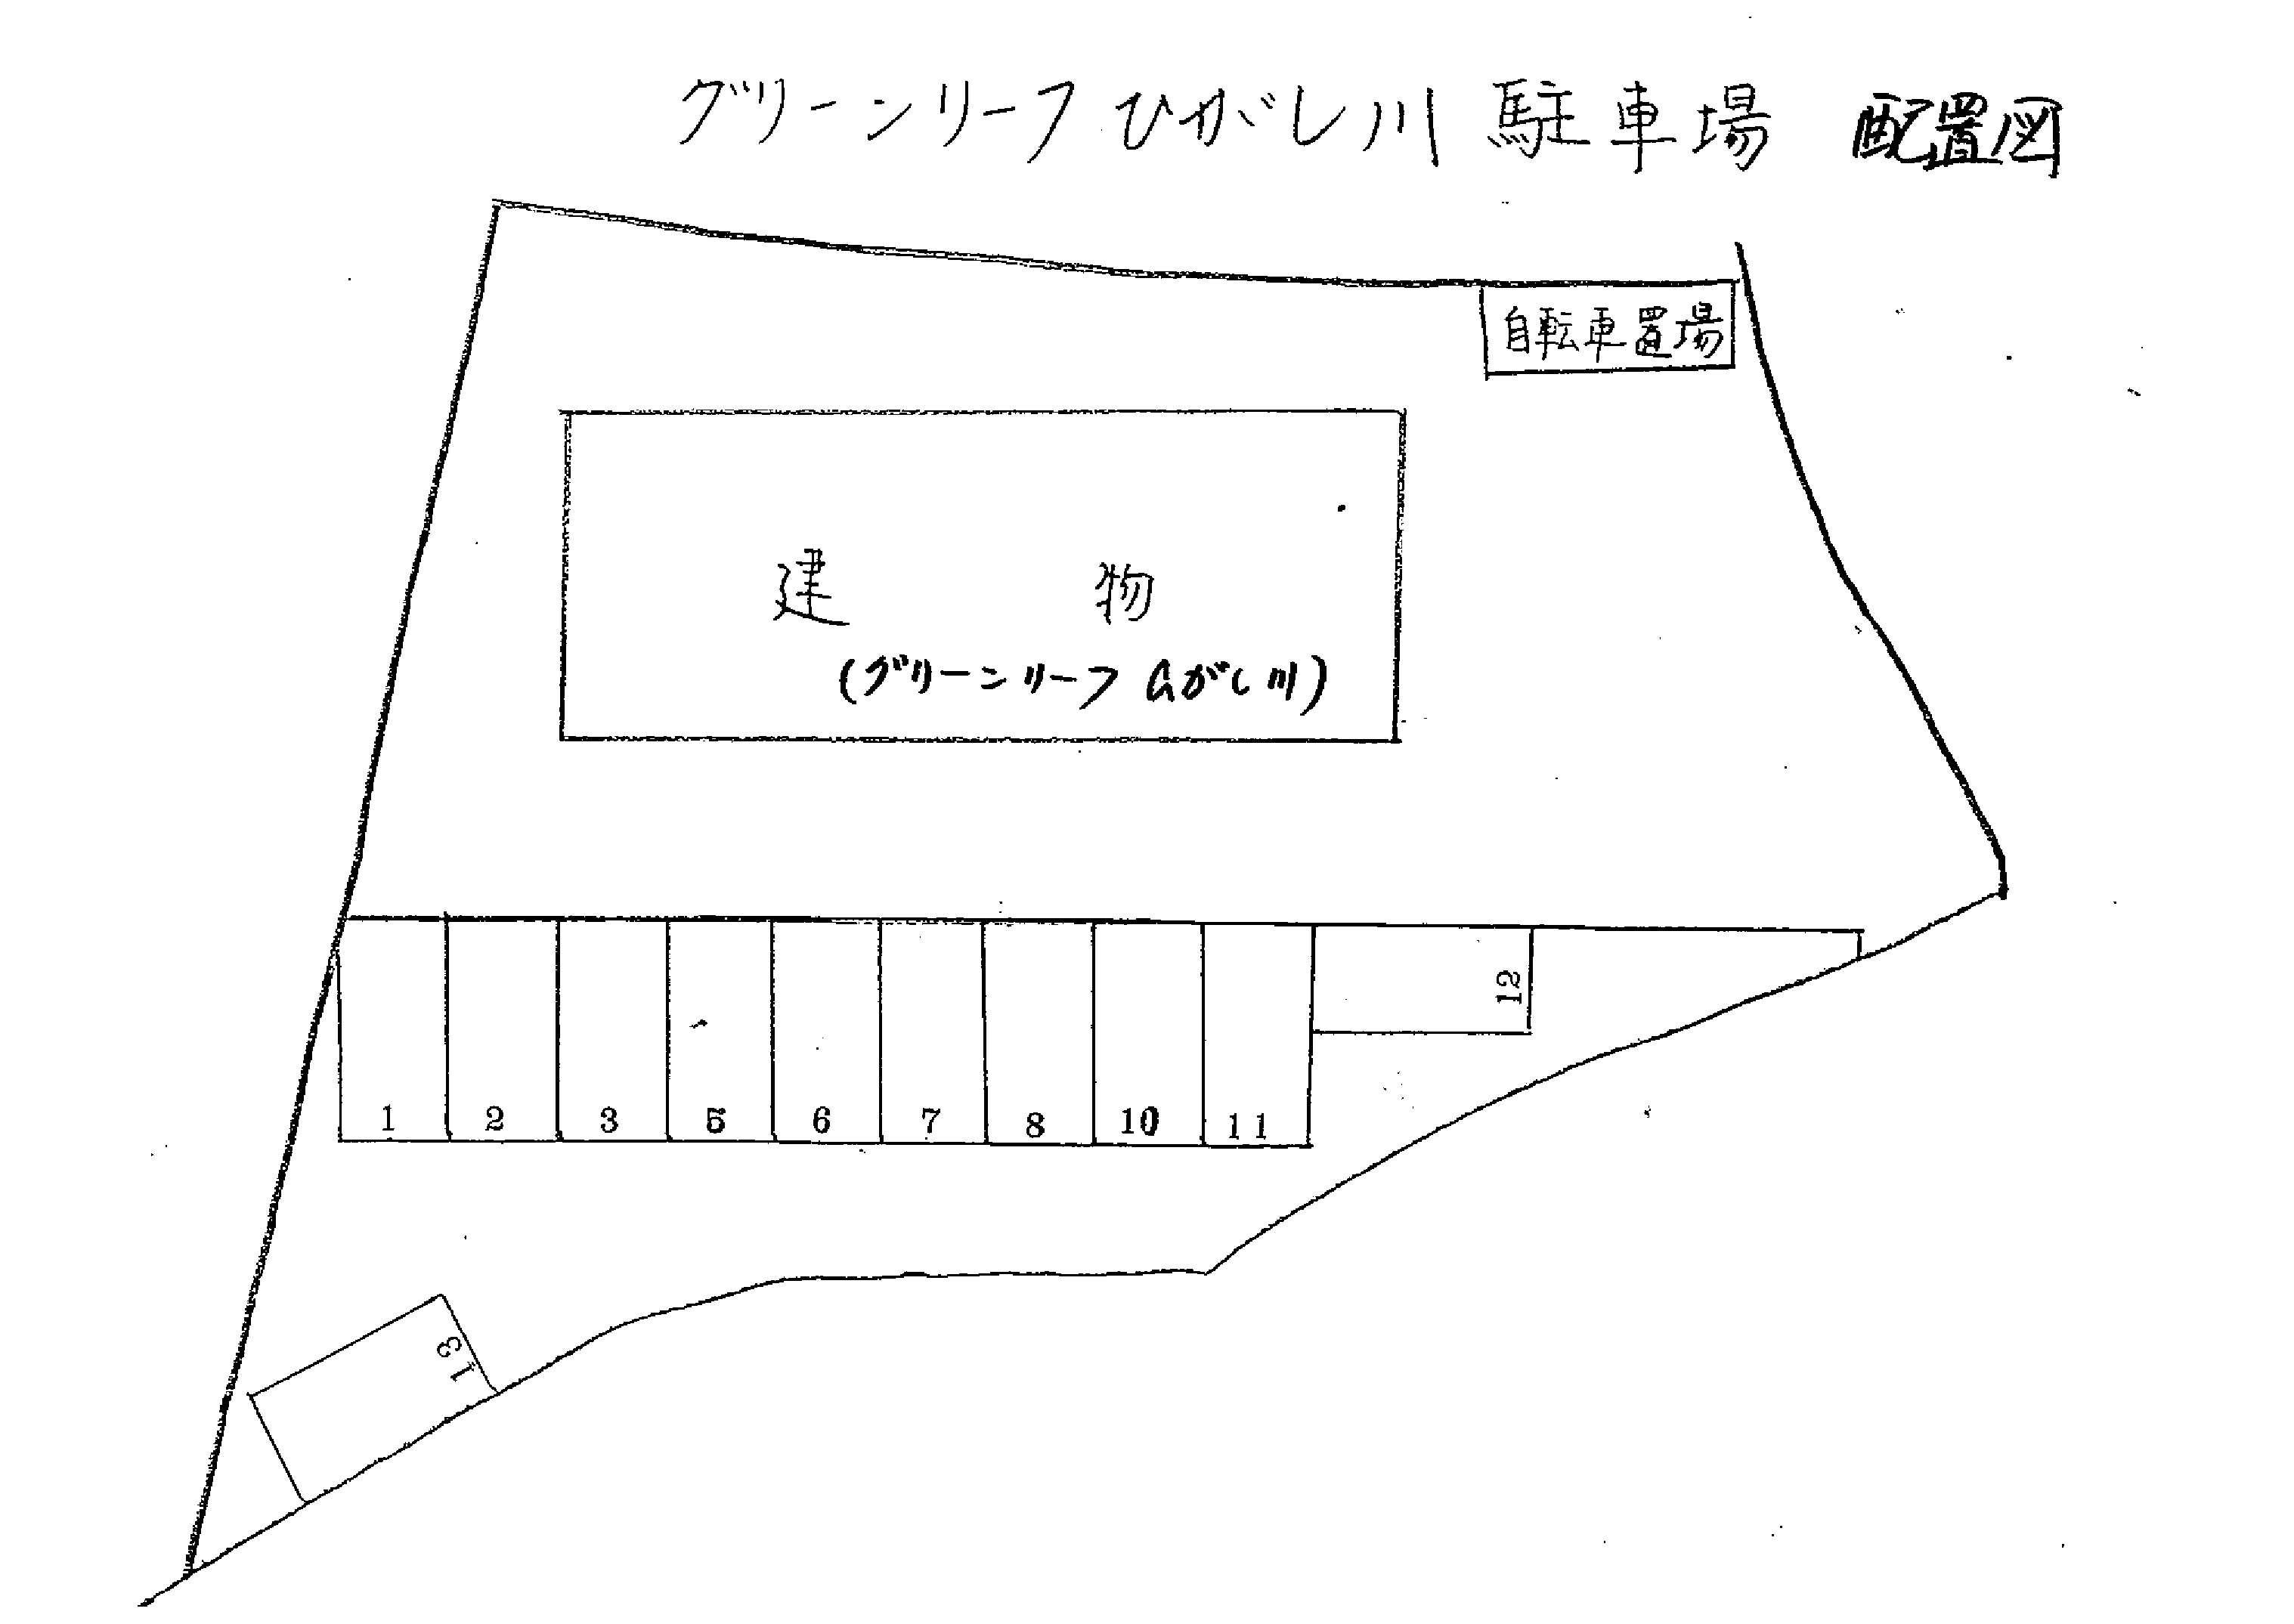 グリーンリーフひがし川 駐車場 配置図
自転車置場
建 物
(グリーンリーフ ひがし川)
12
1 2 3 5 6 7 8 10 11
13